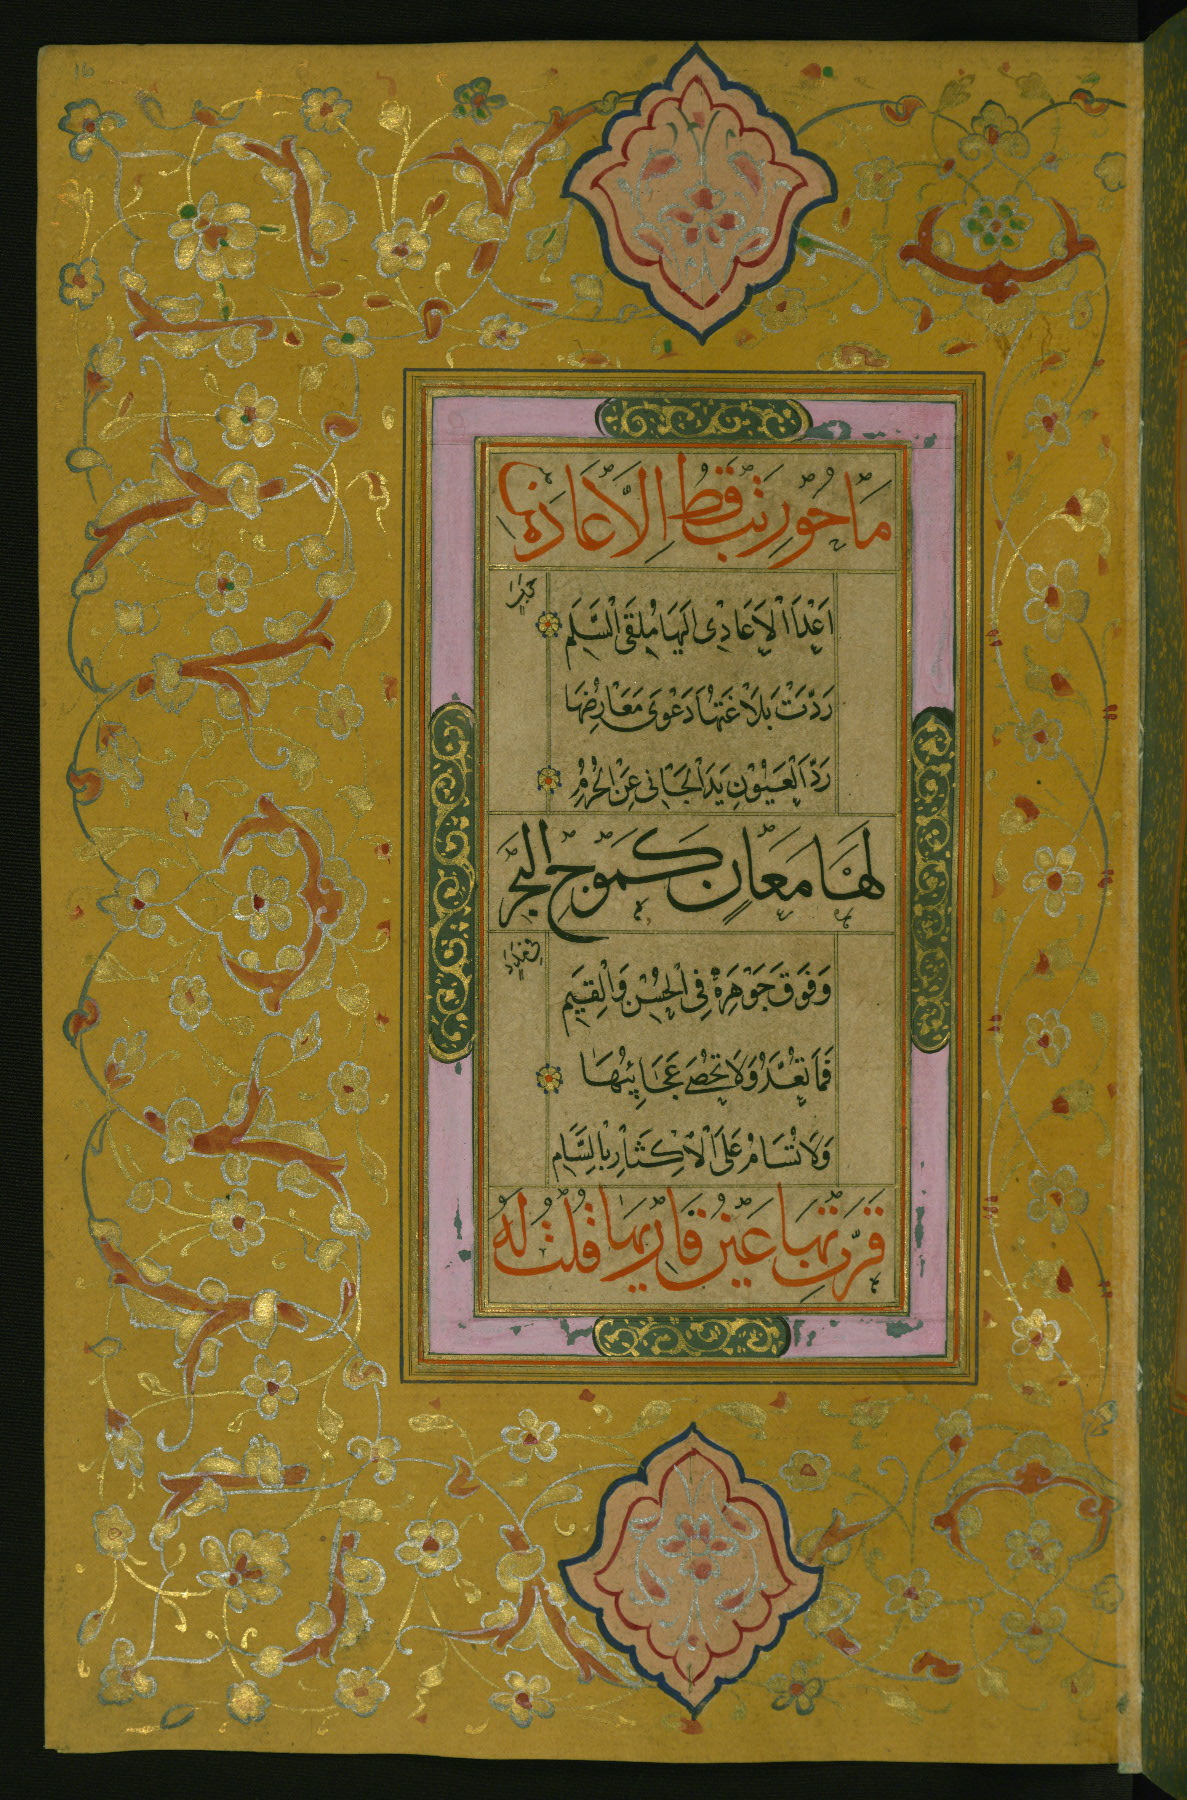 16
مَا حُورِبَتْ قَطُّ اِلَّا عَادَ مِنْ
حَرَبٍ
اَعْدَا اْلاَعَادِى اِلَيْهَا مُلْقِىَ السَّلَمِ
رَدَّتْ بَلاَغَتُهَا دَعْوَى مَعَارِضِهَا
رَدَّ الْغَيُوْرِ يَدَ الْجَانِى عَنِ الْحُرَمِ
لَهَا مَعَانٍ كَمَوْجِ الْبَحْرِ
فِى مَدَدٍ
وَفَوْقَ جَوْهَرِهِ فِى الْحُسْنِ وَالْقِيَمِ
فَمَا تُعَدُّ وَلَا تُحْصٰى عَجَائِبُهَا
وَلَا تُسَامُ عَلَى اْلاِكْثَارِ بِالسَّاَمِ
قَرَّتْ بِهَا عَيْنُ قَارِيْهَا فَقُلْتُ لَهُ